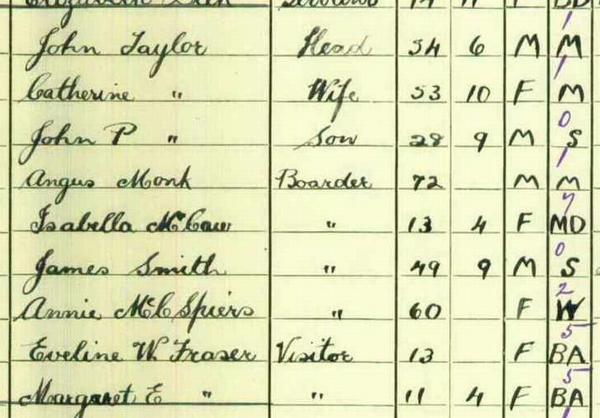 John Taylor Head 54 6 M M 1
Catherine " Wife 53 10 F M 1
John P " Son 28 9 M S 0
Angus Monk Boarder 72 M M 1
Isabella McCaw " 13 4 F MD 7
James Smith " 49 9 M S 0
Annie McC Spiers " 60 F W 2
Eveline W. Fraser Visitor 13 F BA 5
Margaret E " " 11 4 F BA 5